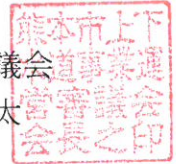 議会
太
熊本市上下
水道事業運
営審議会
会長之印